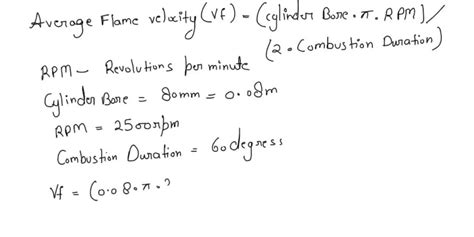 Average Flame velocity (Vf) = (cylinder Bore . π . RPM) /
(2 . Combustion Duration)
RPM - Revolutions per minute
Cylinder Bore = 80mm = 0.08m
RPM = 2500rpm
Combustion Duration = 60 degress
Vf = (0.08 . π . 2